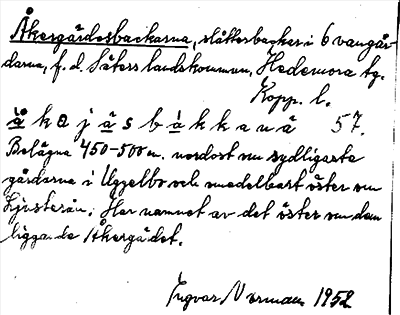 Åkergärdesbackarna, slåttesbackar i 6 vangår-
darna, f. d. Säters landskommun, Hedemora tg.
Kopp. l.
å k a j ä s b á k k a n ä 57.
Belägna 450-500 m. nordost om sydligaste
gårdarna i Uggelbo och omedelbart öster om
Ljusterån. Har namnet av det öster om dem
liggande Åkergädet.
Ingvar Norman 1952